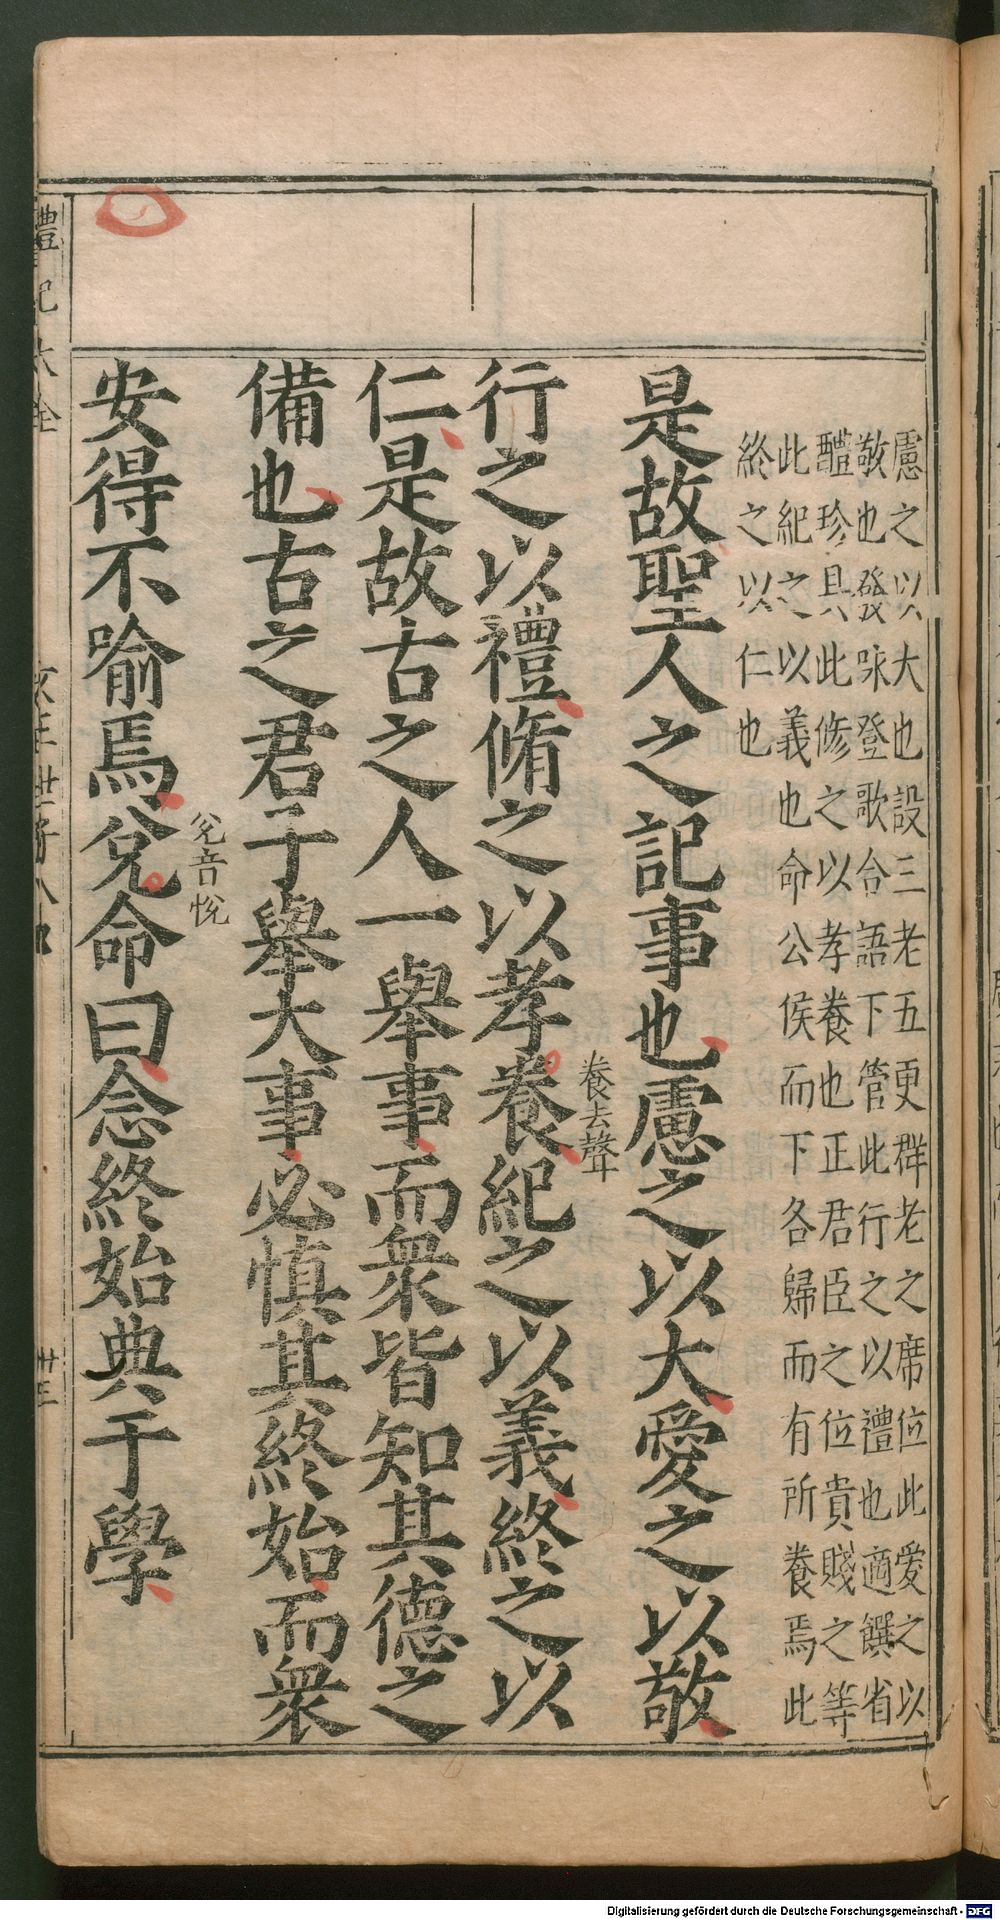 慮之以大也設三老五更群老之席位此愛之以
敬也發咏登歌合語下管此行之以禮也適饌省
醴珍具此修之以孝養也正君臣之位貴賤之等
此紀之以義也命公侯而下各歸而有所養焉此
終之以仁也
是故聖人之記事也慮之以大愛之以敬
養去聲
行之以禮脩之以孝養紀之以義終之以
仁是故古之人一舉事而衆皆知其德之
備也古之君子舉大事必慎其終始而衆
兌音悅
安得不喻焉兌命曰念終始典于學
禮記大全
文王世子八
卅三
Digitalisierung gefördert durch die Deutsche Forschungsgemeinschaft - DFG